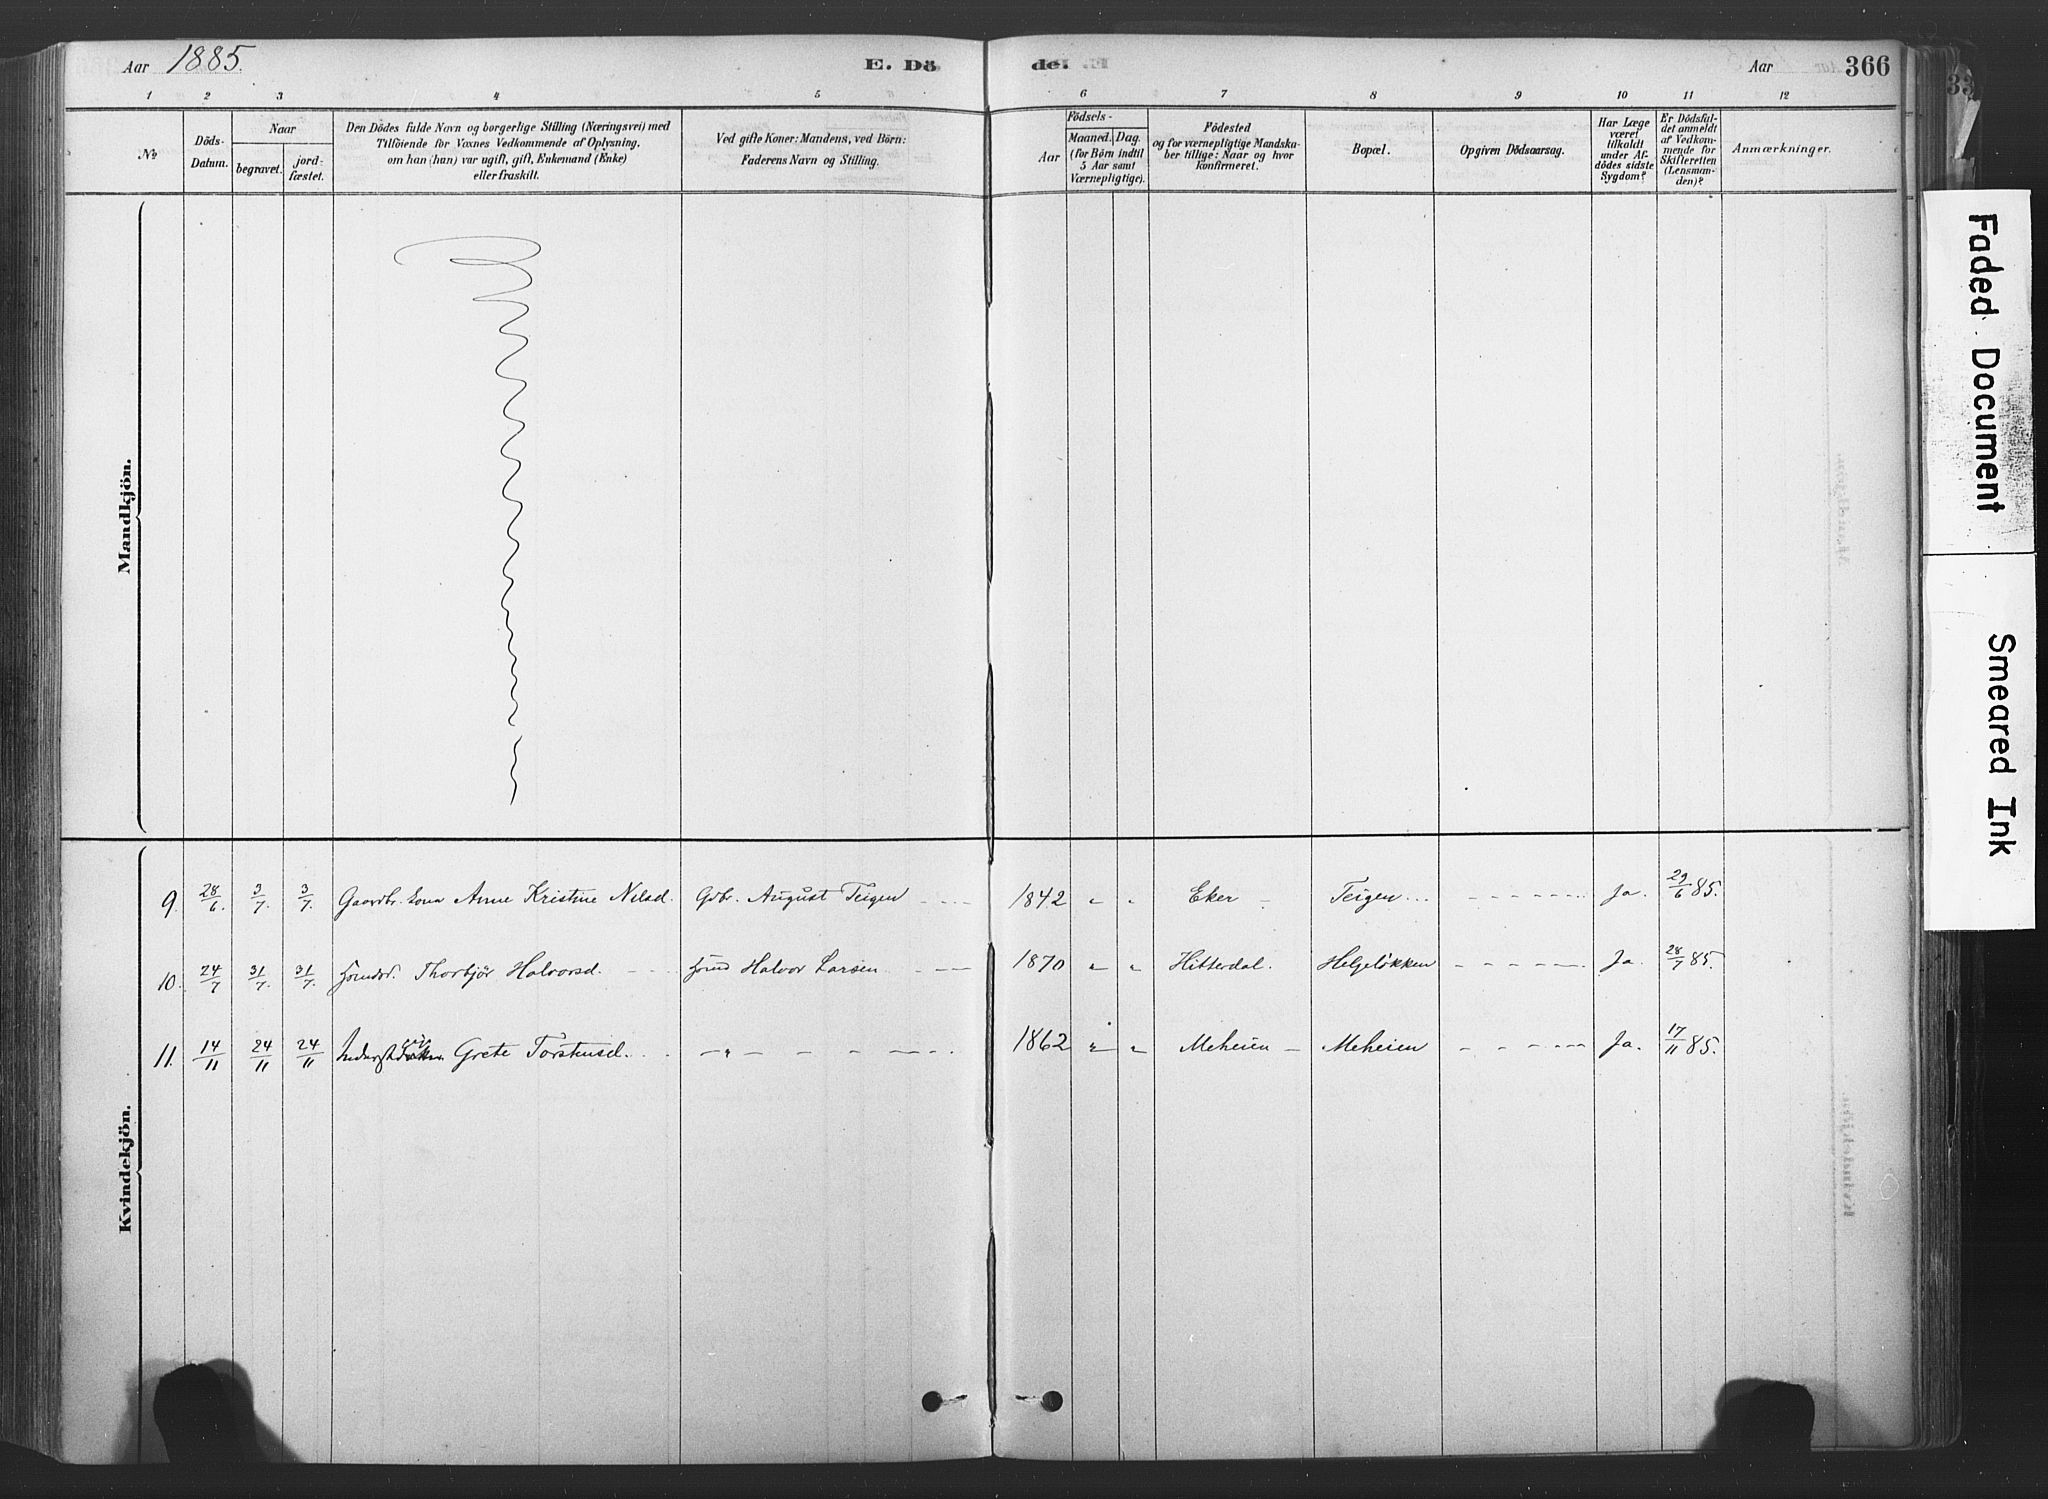 Aar 1885. E. Dö de. Aar 366
1 2 3 4 5 6 7 8 9 10 11 12
No
Döds-
Datum.
Naar
begravet.
jord-
fæstet.
Den Dödes fulde Navn og borgerlige Stilling (Næringsvei) med
Tilföiende for Voxnes Vedkommende af Oplysning,
om han (hun) var ugift, gift, Enkemand (Enke)
eller fraskilt.
Ved gifte Koner: Mandens, ved Börn:
Faderens Navn og Stilling.
Födsels-
Aar
Maaned. Dag.
(for Börn indtil
5 Aar samt
Værnepligtige).
Födested
og for værnepligtige Mandska-
ber tillige: Naar og hvor
konfirmeret.
Bopæl.
Opgiven Dödsaarsag.
Har Læge
været
tilkaldt
under Af-
dödes sidste
Sygdom?
Er Dödsfal-
det anmeldt
af Vedkom-
mende for
Skifteretten
(Lensman-
den)?
Anmærkninger.
Mandkjön.
Kvindekjön.
9. 28/6 3/7 3/7 Gaardbr. kona Anne Kristine Nilsd. Gdbr. August Teigen 1842 " " Eker Teigen Ja. 29/6 85.
10. 24/7 31/7 31/7 Thorbjör Halvorsd. Halvor Larsen 1870 " " Hitterdal. Helgeløkken Ja. 28/7 85.
11. 14/11 24/11 24/11 Grete Torstensd. " 1862 " " Meheien Meheien Ja. 17/11 85.
Faded Document
Smeared Ink